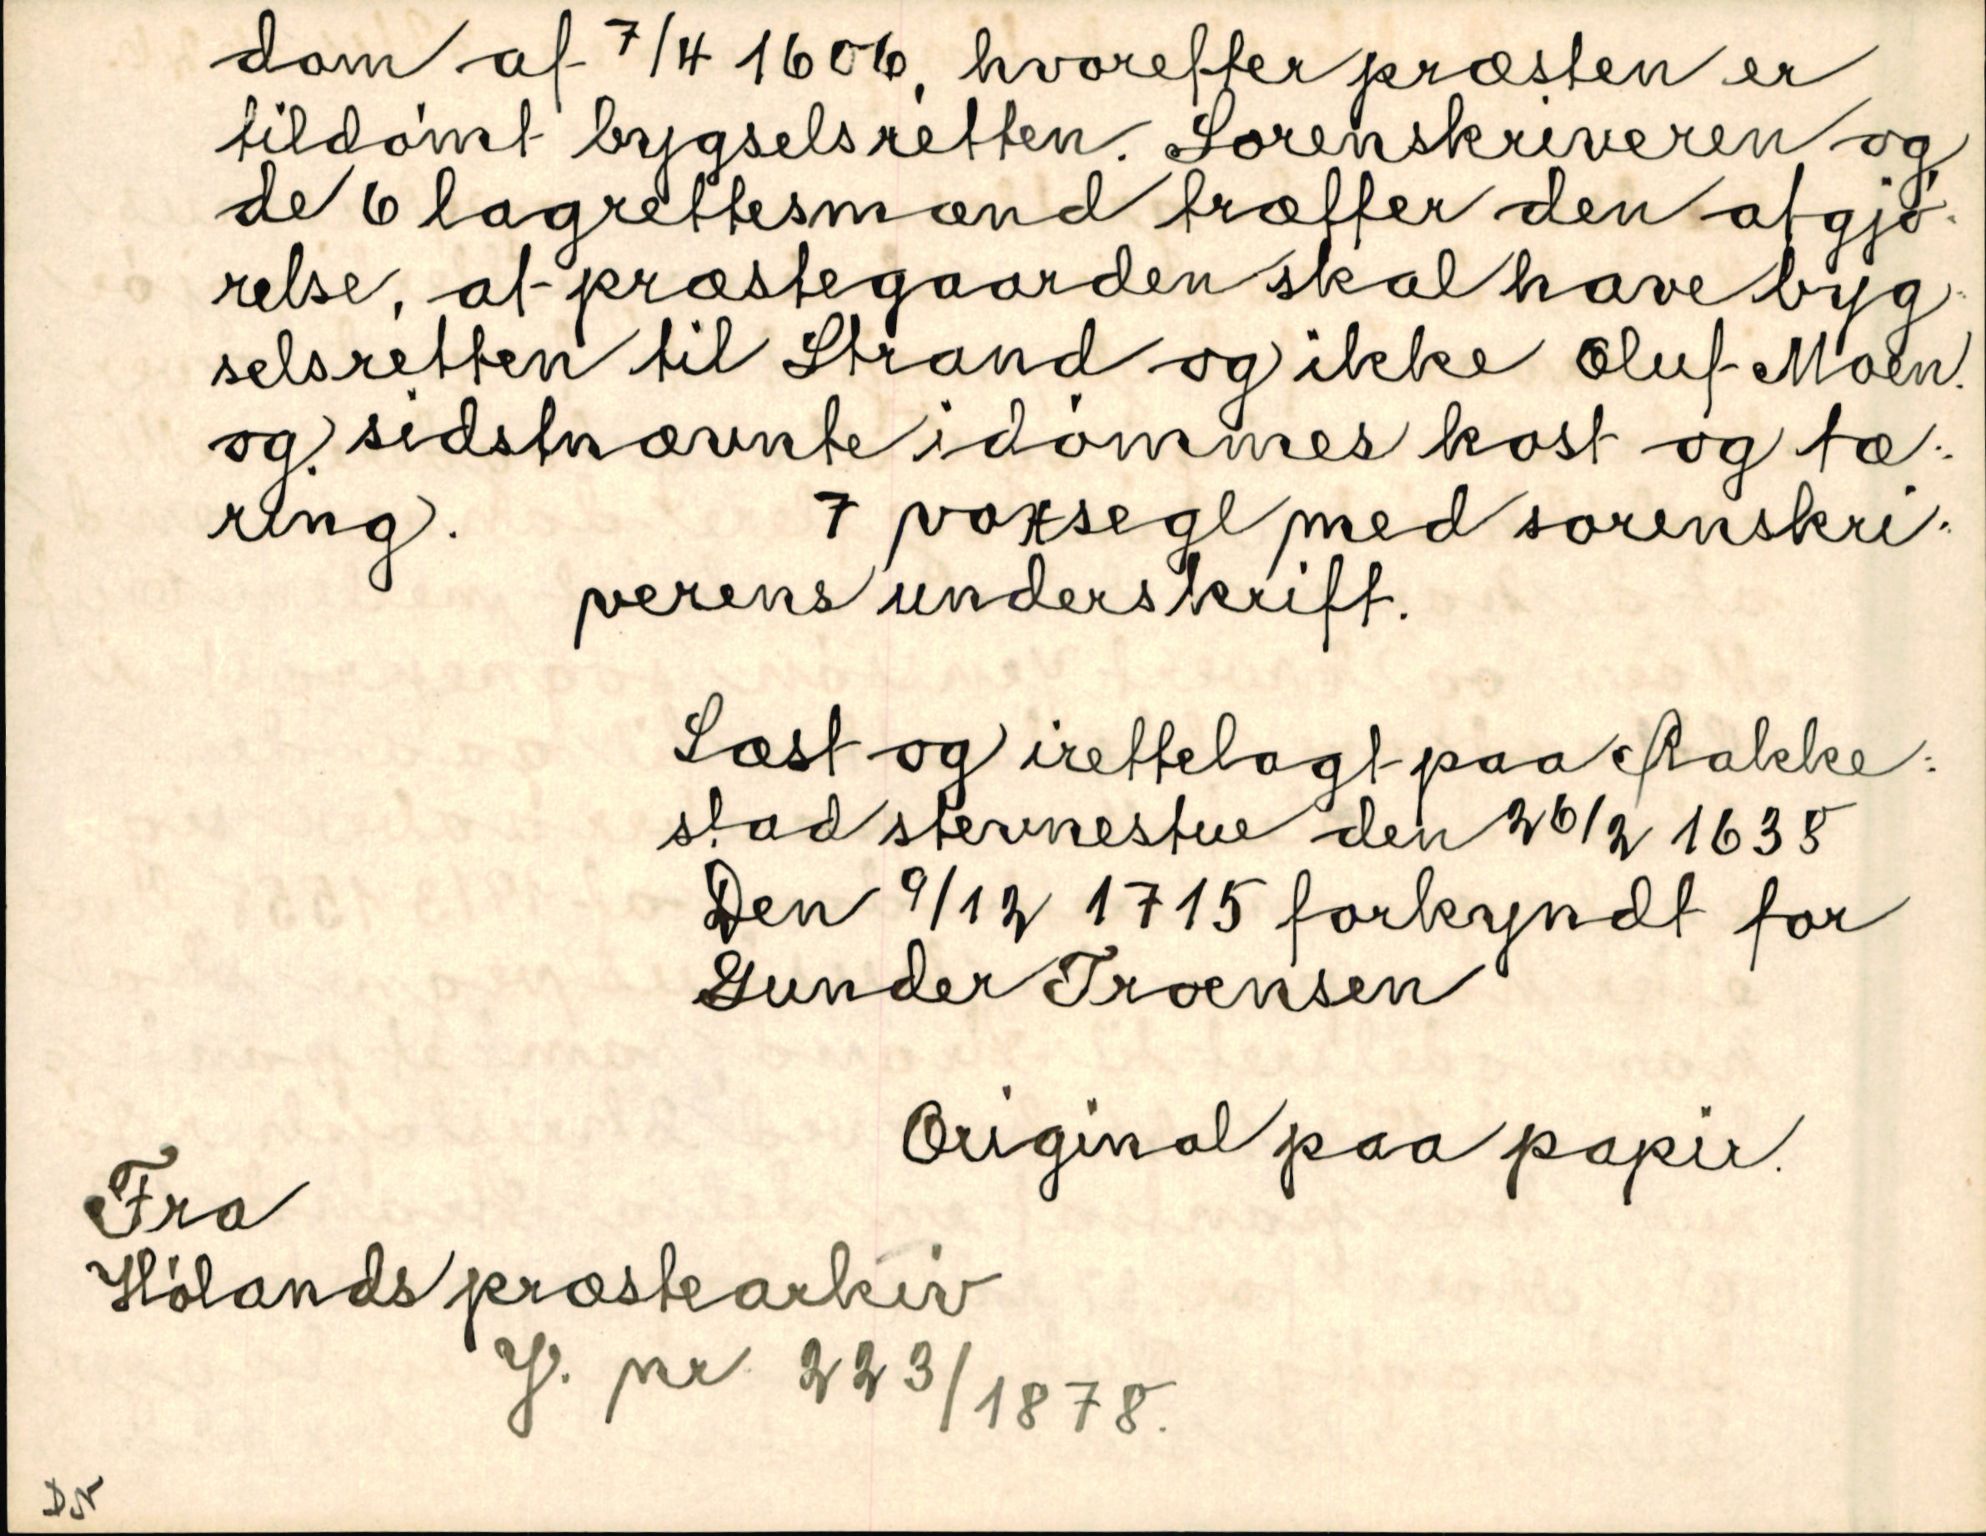 dom af 7/4 1606, hvorefter præsten er
tildömt bygselsretten. Sorenskriveren og
de 6 lagrettesmænd træffer den afgjö-
relse, at præstegaarden skal have byg-
selsretten til Strand og ikke Oluf Moen.
og sidstnævnte idömmes kost og tæ-
ring. 7 voxsegl med sorenskri-
verens underskrift.
Læst og irettelagt paa Rakke-
stad stevnestue den 26/2 1638
Den 9/12 1715 forkyndt for
Gunder Troensen
Original paa papir.
Fra
Hölands præstearkiv
J. nr 223/1878.